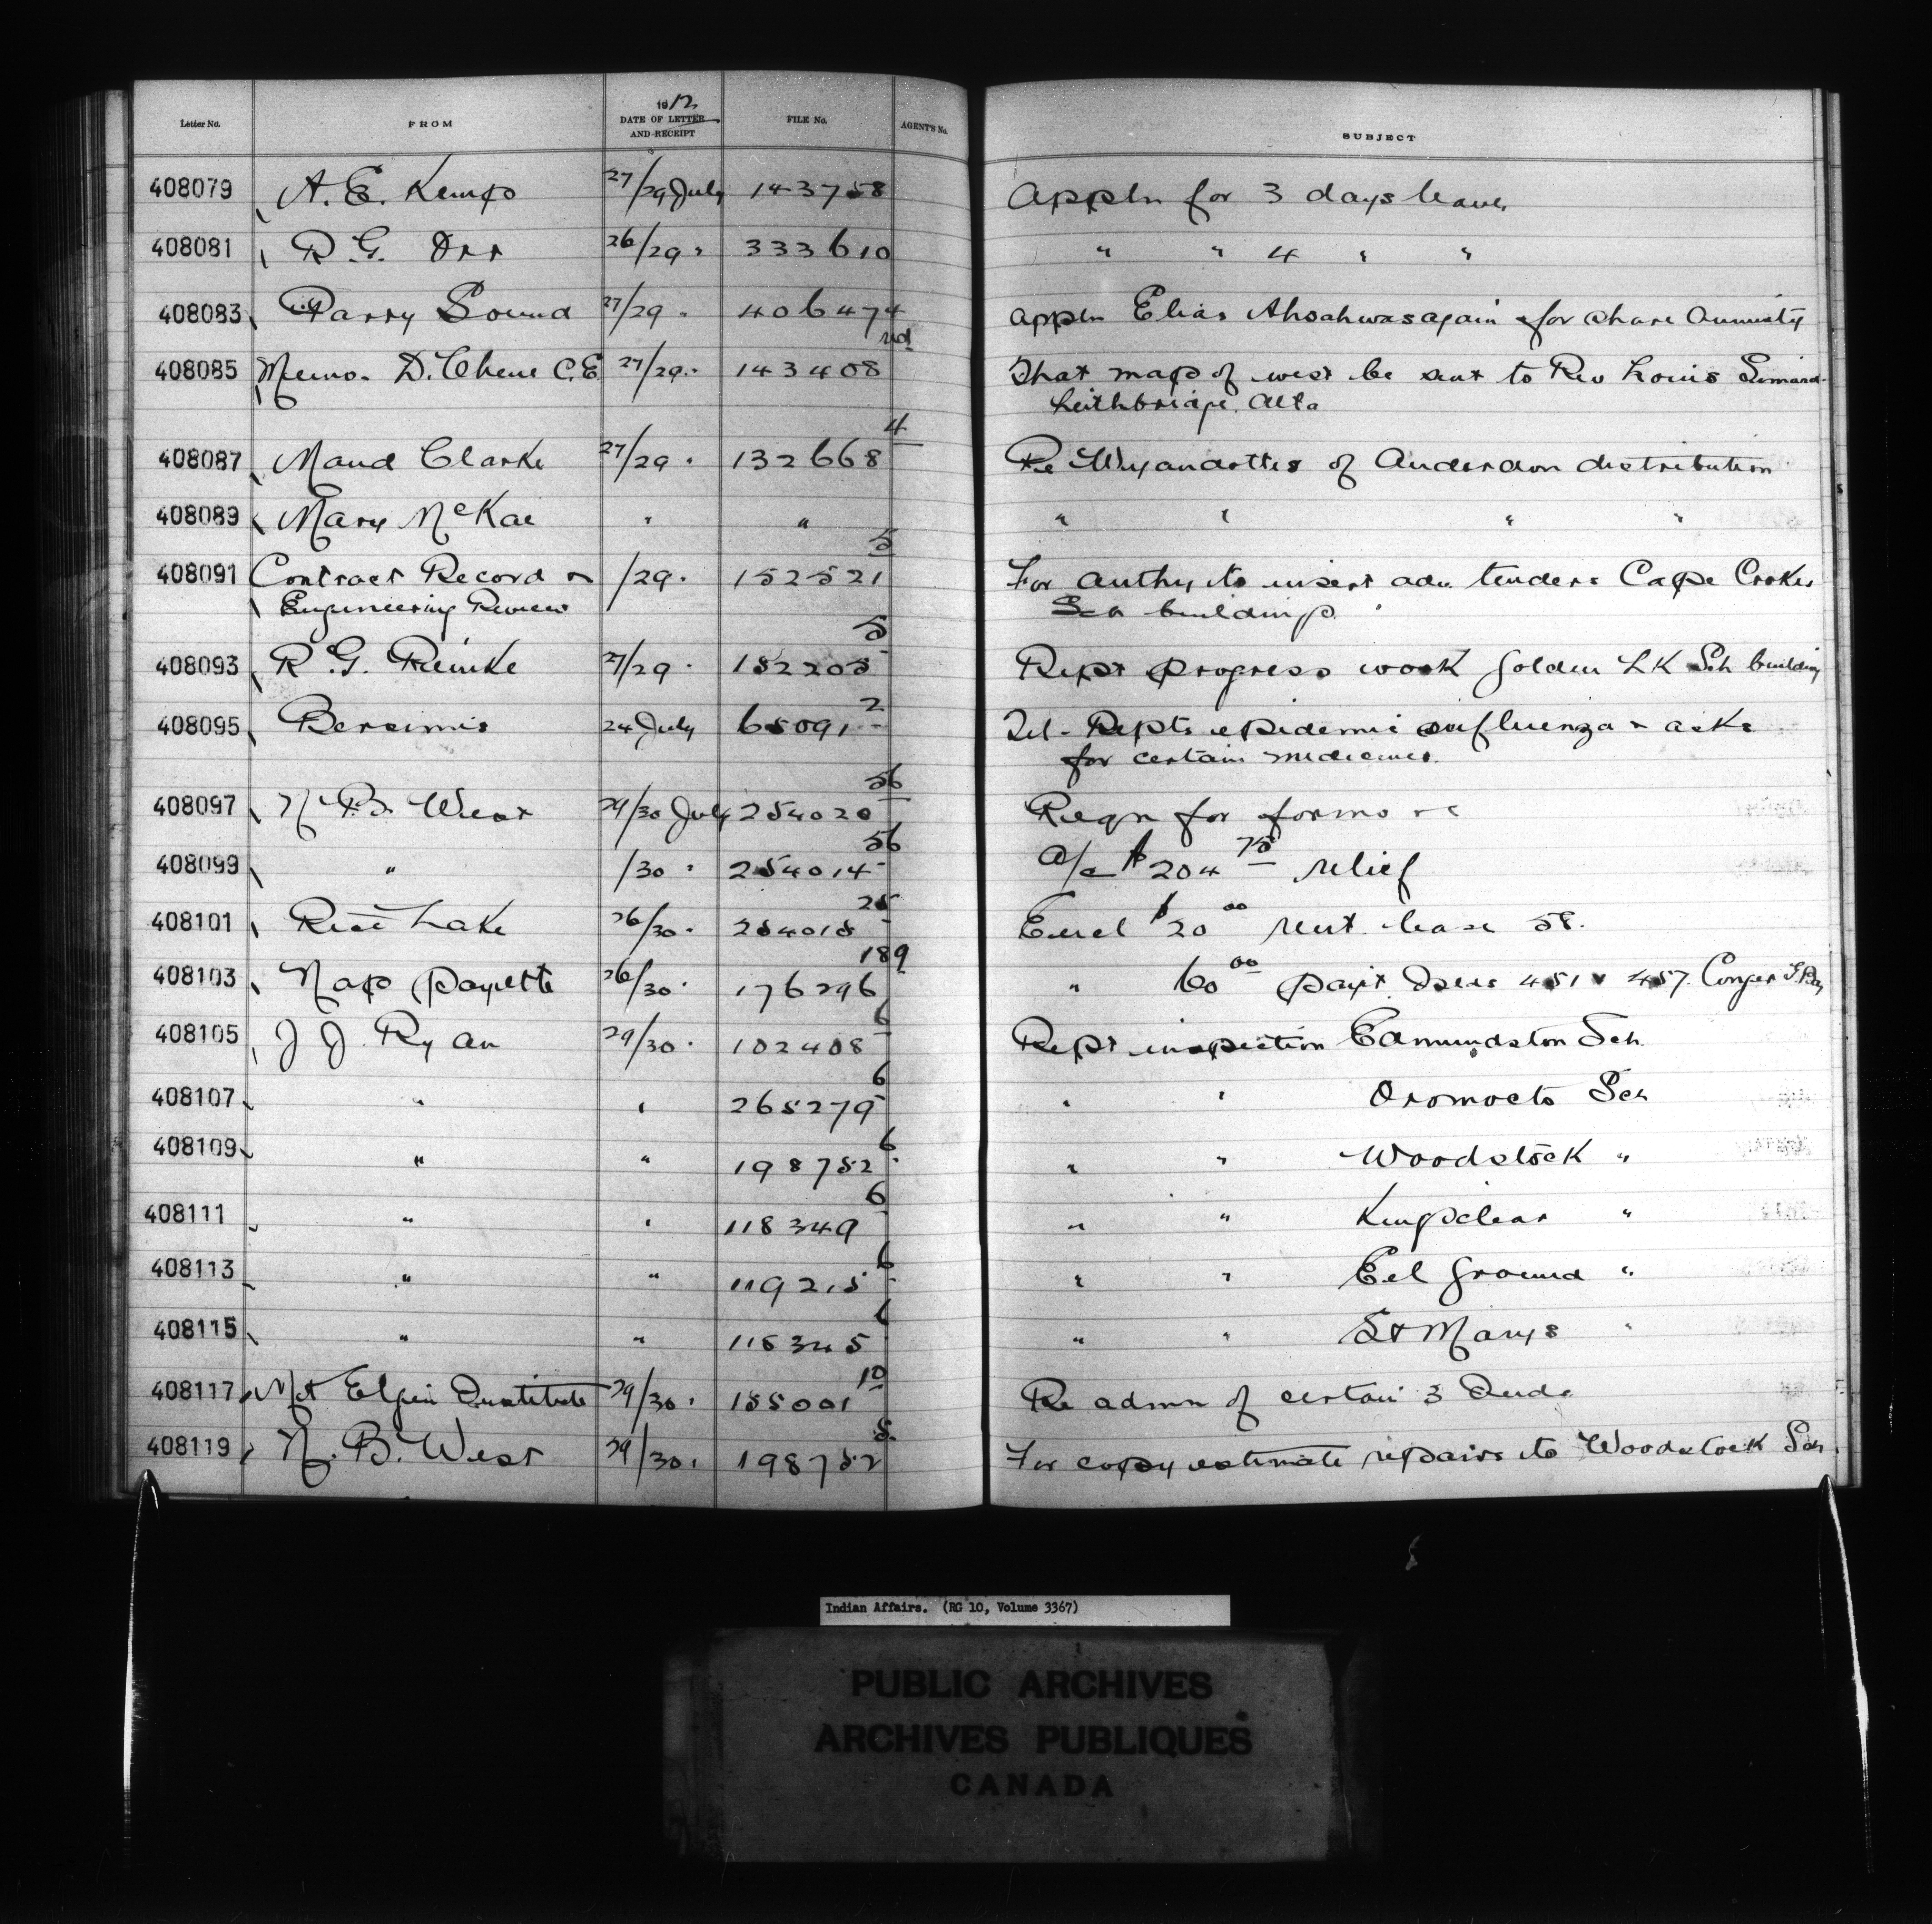 1912
Letter No. FROM DATE OF LETTER AND RECEIPT FILE No. AGENT'S No. SUBJECT
408079 A. E. Kemp 27/29 July 143758 Appln for 3 days leave
408081 R. G. Orr 26/29 " 333610 " " 4 " "
408083 Parry Sound 27/29 " 406474 Appln Elias for share Annuity
408085 Memo. D. Chene C.E. 27/29 " 143408 That map of west be sent to Rev Louis Simard
Leithbridge, Alta
408087 Maud Clarke 27/29 " 132668 4 Re Wyandottes of Anderdon distribution
408089 Mary McKae " " " " " "
408091 Contract Record & /29 " 152521 5 For authy to insert adv. tenders Cape Croker
Engineering Review Sch buildings.
408093 R. G. Reinke 27/29 " 152205 5 Rept progress work Golden LK Sch building
408095 Bersimis 24 July 65091 2 Tel - Repts epidemic influenza & asks
for certain medicines.
408097 N. B. West 29/30 July 254020 56 Reqn for forms &c
408099 " /30 " 254014 56 A/c $204 75 relief
408101 Rice Lake 26/30 " 254015 25 Encl $20 00 rent lease 58.
408103 Nap Payette 26/30 " 176296 189 " 60 00 payt Isles 451 & 457 Conger G. Bay
408105 J. J. Ryan 29/30 " 102408 6 Rept inspection Edmundston Sch
408107 " " 265279 6 " " Oromocto Sch
408109 " " 198752 6 " " Woodstock "
408111 " " 118349 6 " " Kingsclear "
408113 " " 119215 6 " " Eel Ground "
408115 " " 115345 6 " " St Marys "
408117 Mt Elgin Institute 29/30 " 155001 10 Re admn of certain 3 Inds
408119 N. B. West 29/30 " 198752 5 For copy estimate repairs to Woodstock Sch.
Indian Affairs. (RG 10, Volume 3367)
PUBLIC ARCHIVES
ARCHIVES PUBLIQUES
CANADA